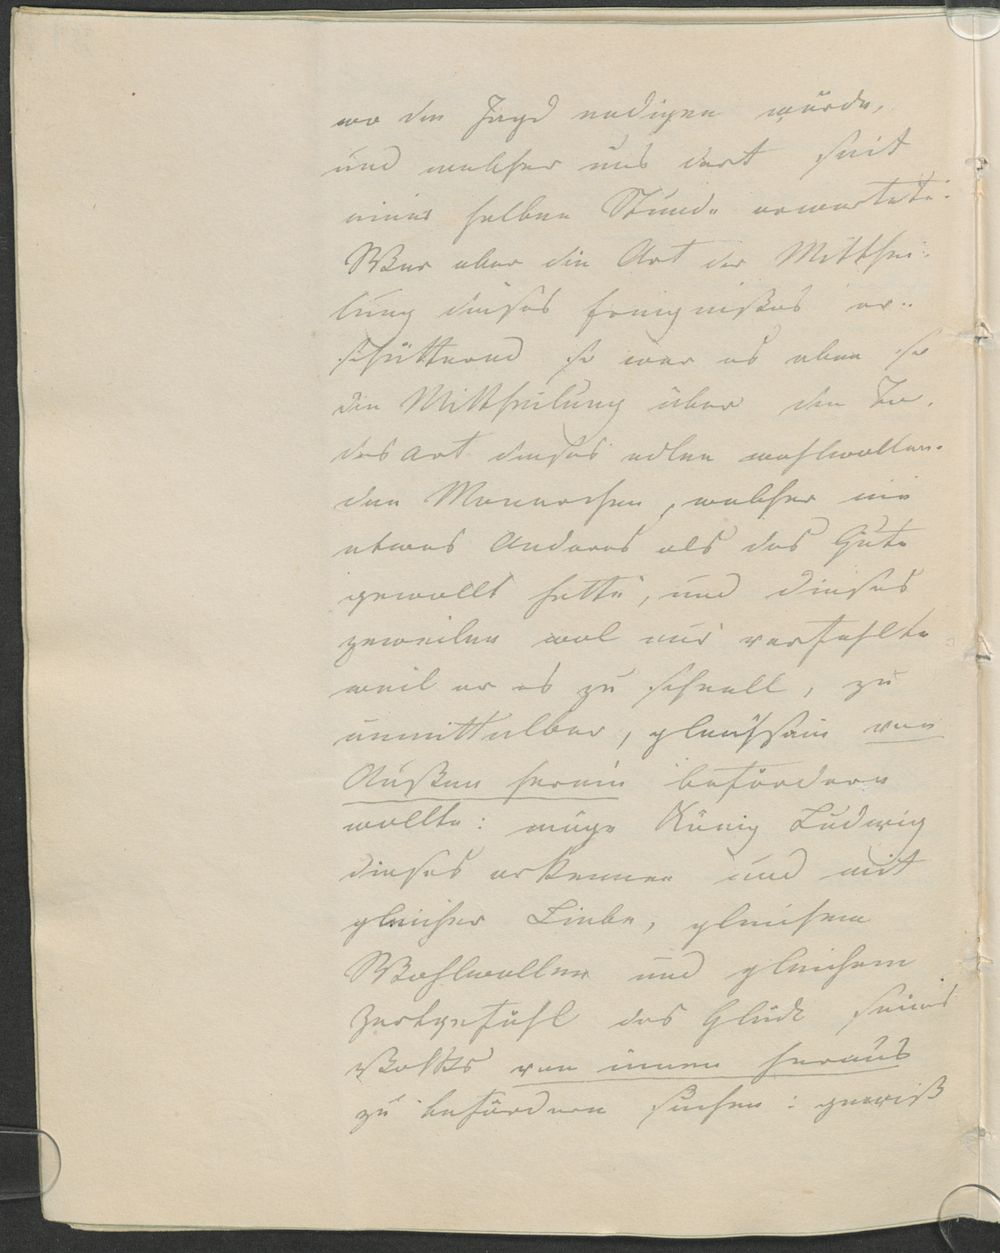 wo die Jagd endigen würde,
und welcher uns dort seit
einer halben Stunde erwartete.
War aber die Art der Mitthei-
lung dieses Ereignißes er-
schütternd so war es eben so
die Mittheilung über die To-
desart dieses edlen wohlwollen-
den Monarchen, welcher nie
etwas Anderes als das Gute
gewollt hatte, und dieses
zuweilen wol nur verfehlte
weil er es zu schnell, zu
unmittelbar, gleichsam von
Außen herein befördern
wollte: möge König Ludwig
dieses erkennen und mit
gleicher Liebe, gleichem
Wohlwollen und gleichem
Zartgefühl das Glück seines
Volkes von innen heraus
zu befördern suchen: gewiß